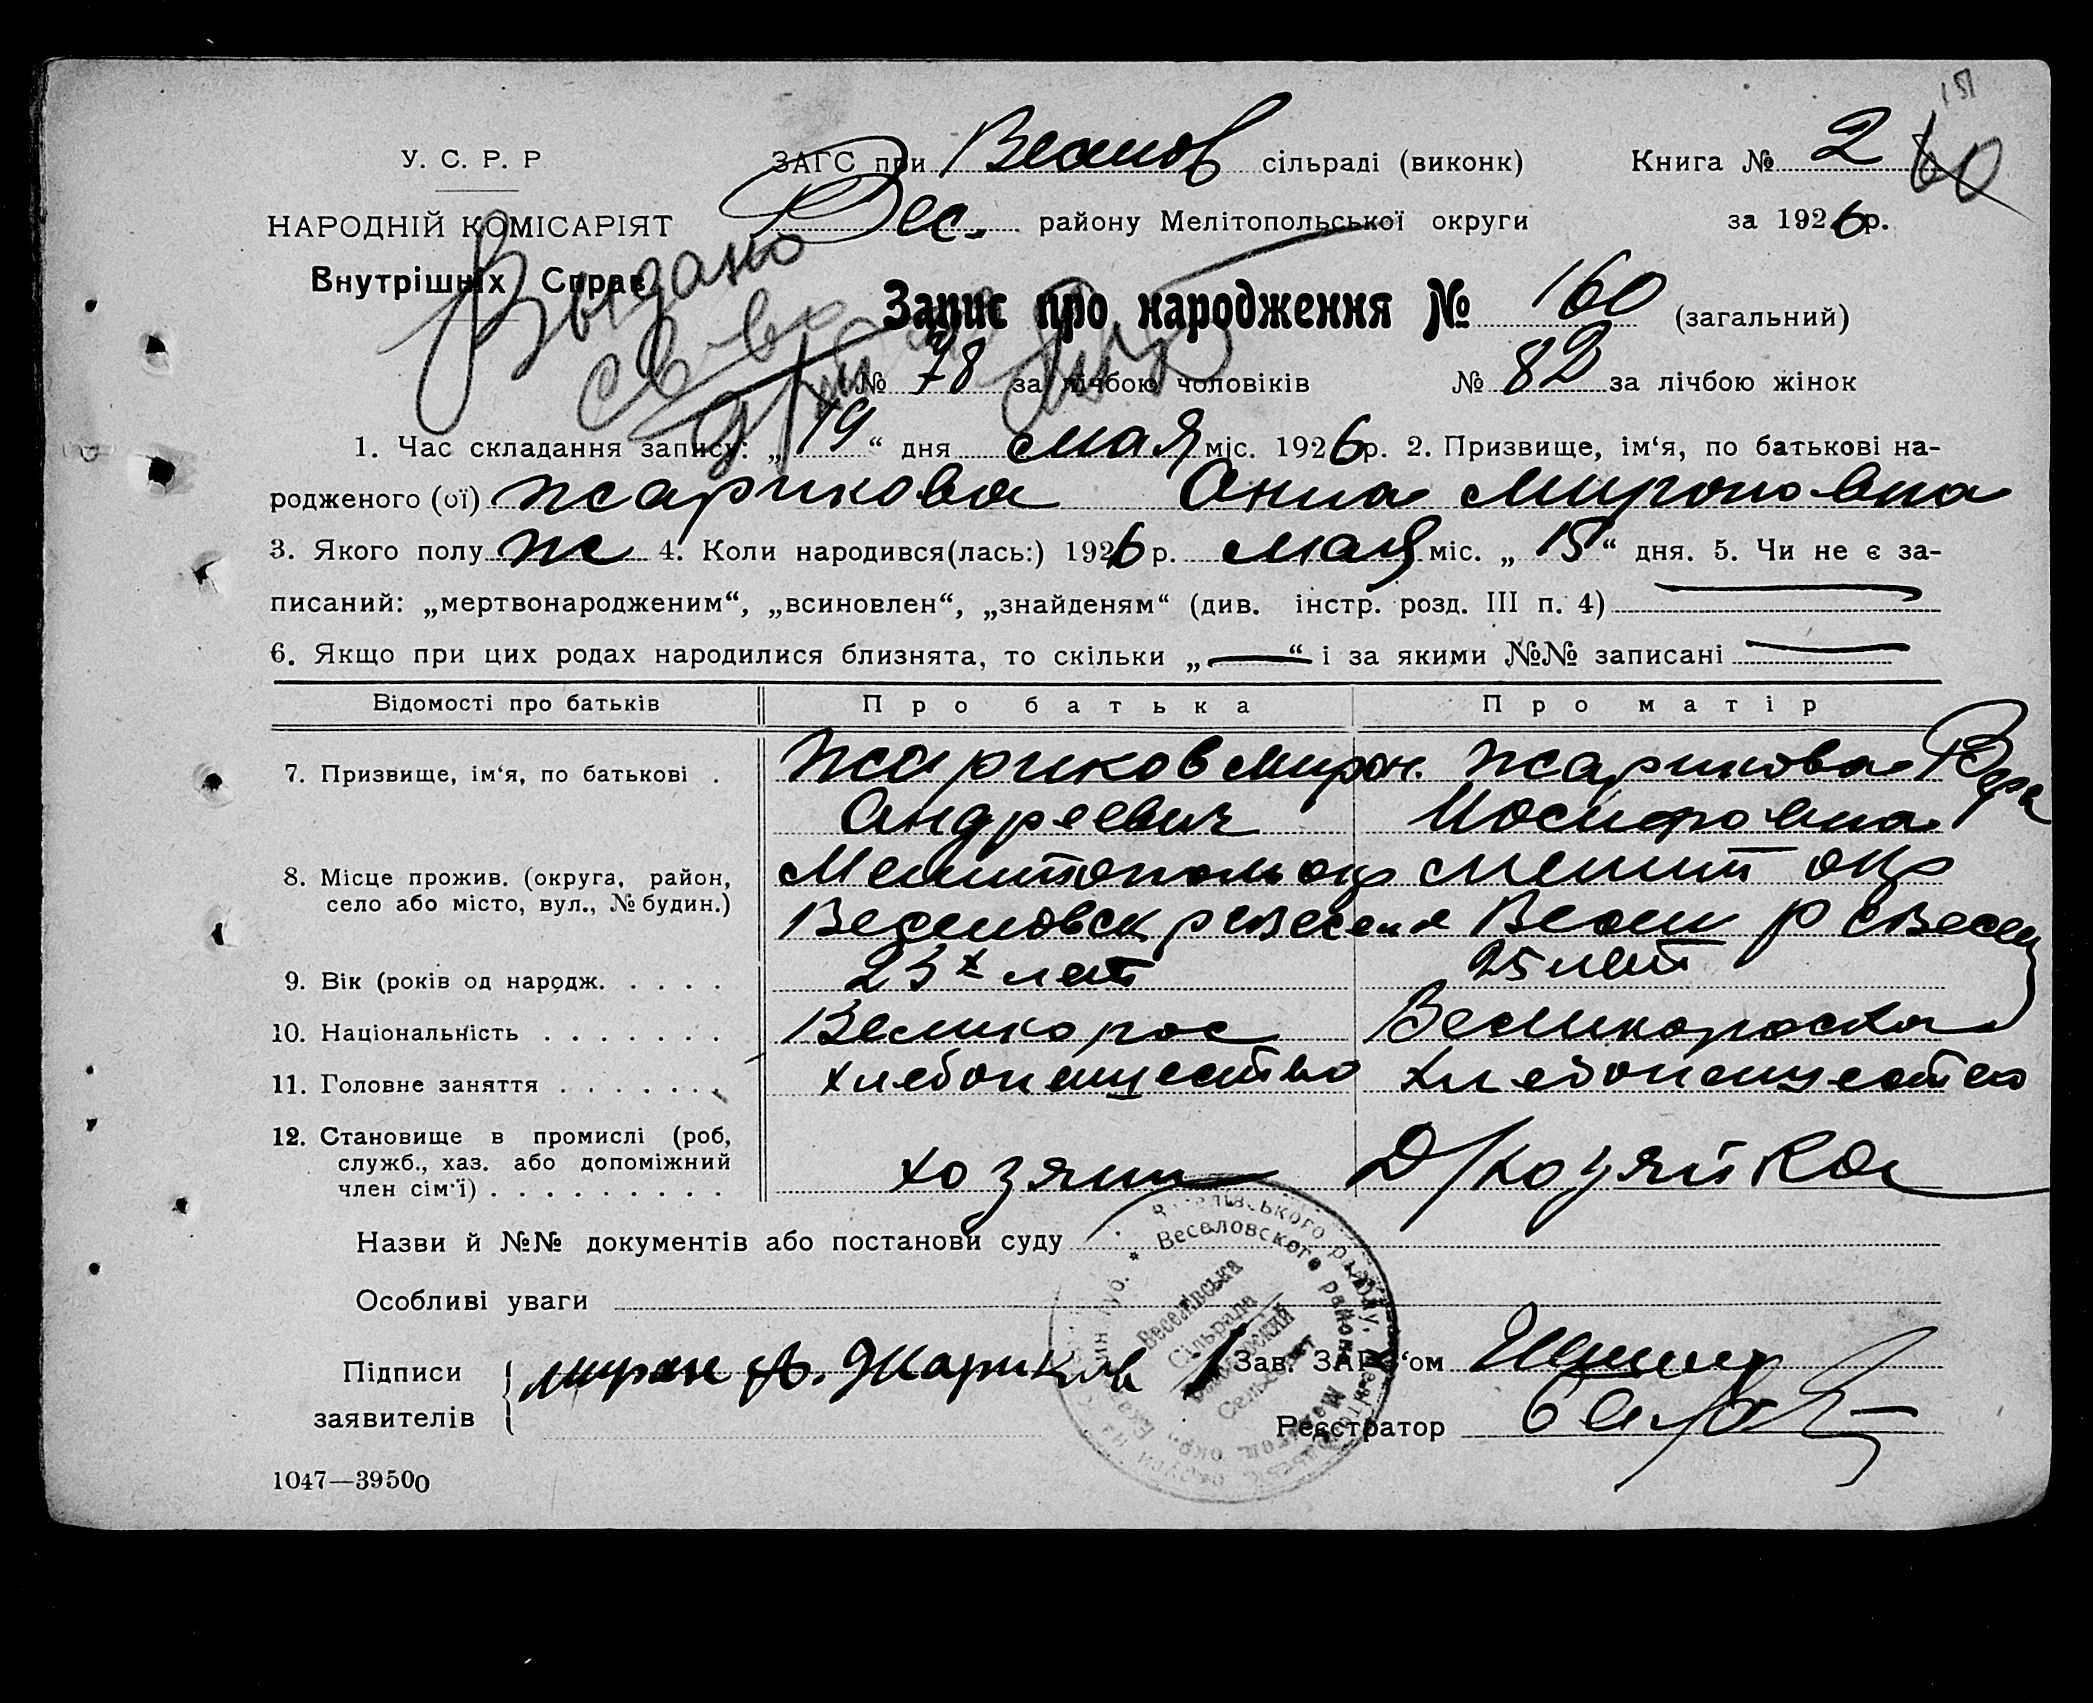 151
У. С. Р. Р
ЗАГС при Веселов сільраді (виконк)
Книга № 2
60
НАРОДНІЙ КОМІСАРІЯТ
Вес. району Мелітопольської округи
за 1926 р.
Внутрішніх Справ
Выдано
св-во
Запис про народження № 160 (загальний)
№ 78 за лічбою чоловіків
№ 82 за лічбою жінок
1. Час складання запису: „19“ дня мая міс. 1926 р. 2. Призвище, ім‘я, по батькові на-
родженого (ої) Жарикова Анна Мироновна
3. Якого полу ж 4. Коли народився(лась:) 1926 р. мая міс. „15“ дня. 5. Чи не є за-
писаний: „мертвонародженим“, „всиновлен“, „знайденям“ (див. інстр. розд. III п. 4)
6. Якщо при цих родах народилися близнята, то скільки „—“ і за якими №№ записані
Відомості про батьків
Про батька
Про матір
7. Призвище, ім‘я, по батькові .
Жариков Мирон
Андреевич
Жарикова Вера
Иосифовна
8. Місце прожив. (округа, район,
село або місто, вул., № будин.)
Мелитополь окр
Веселовск р с Веселое
Мелит окр
Весел р с Весел
9. Вік (років од народж. . . . .
23х лет
25 лет
10. Національність . . . . . . .
Великорос
Великороска
11. Головне заняття . . . . . . .
хлебопашество
хлебопашество
12. Становище в промислі (роб,
служб., хаз. або допоміжний
член сім‘ї) . . . . . . . . .
хозяин
Д/хозяйка
Назви й №№ документів або постанови суду
Особливі уваги
Веселівського району,
Веселовского района
Веселівська
Сільрада
Веселовский
Сельсовет
Підписи
заявителів
Мирон А. Жариков
Зав. ЗАГС‘ом
Реєстратор
1047—39500